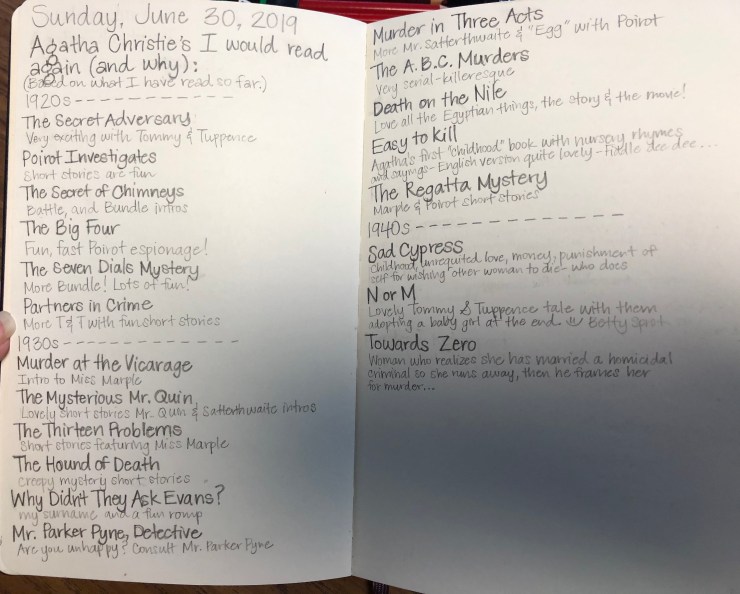 Sunday, June 30, 2019
Agatha Christie's I would read
again (and why):
(Based on what I have read so far.)
1920s - - - - - - - - - - - -
The Secret Adversary
Very exciting with Tommy & Tuppence
Poirot Investigates
Short stories are fun
The Secret of Chimneys
Battle, and Bundle intros
The Big Four
Fun, fast Poirot espionage!
The Seven Dials Mystery
More Bundle! Lots of fun!
Partners in Crime
More T & T with fun short stories
1930s - - - - - - - - - - - - -
Murder at the Vicarage
Intro to Miss Marple
The Mysterious Mr. Quin
Lovely short stories Mr. Quin & Satterthwaite intros
The Thirteen Problems
Short stories featuring Miss Marple
The Hound of Death
creepy mystery short stories
Why Didn't They Ask Evans?
my surname and a fun romp
Mr. Parker Pyne, Detective
Are you unhappy? Consult Mr. Parker Pyne
Murder in Three Acts
More Mr. Satterthwaite & "Egg" with Poirot
The A.B.C. Murders
Very serial-killeresque
Death on the Nile
Love all the Egyptian things, the story & the movie!
Easy to Kill
Agatha's first "childhood" book with nursery rhymes
and sayings - English version quite lovely - fiddle dee dee...
The Regatta Mystery
Marple & Poirot short stories
1940s - - - - - - - - - - - - - - -
Sad Cypress
Childhood, unrequited love, money, punishment of
self for wishing other woman to die - who does
N or M
Lovely Tommy & Tuppence tale with them
adopting a baby girl at the end Betty
Towards Zero
Woman who realizes she has married a homicidal
criminal so she runs away, then he frames her
for murder...